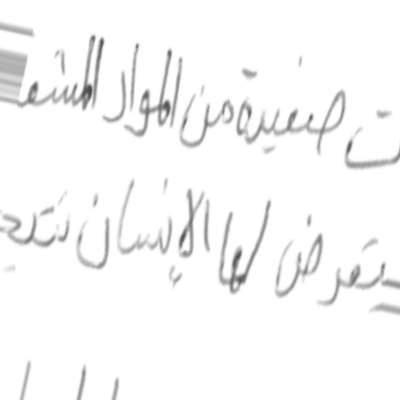 ت صغيرة من المواد المشعـ
يتعرض لها الإنسان نتيجـ